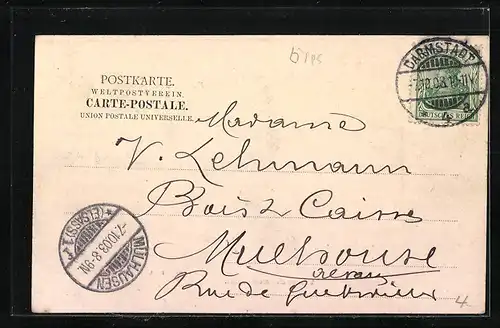 POSTKARTE.
WELTPOSTVEREIN.
CARTE-POSTALE.
UNION POSTALE UNIVERSELLE.
DARMSTADT
DEUTSCHES REICH
Madame
V. Lehmann
Bois & Caisse
Mulhouse
Rue de Guebwiller
MÜLHAUSEN
-7.10.03.8-9N.
(ELSASS) 1
4